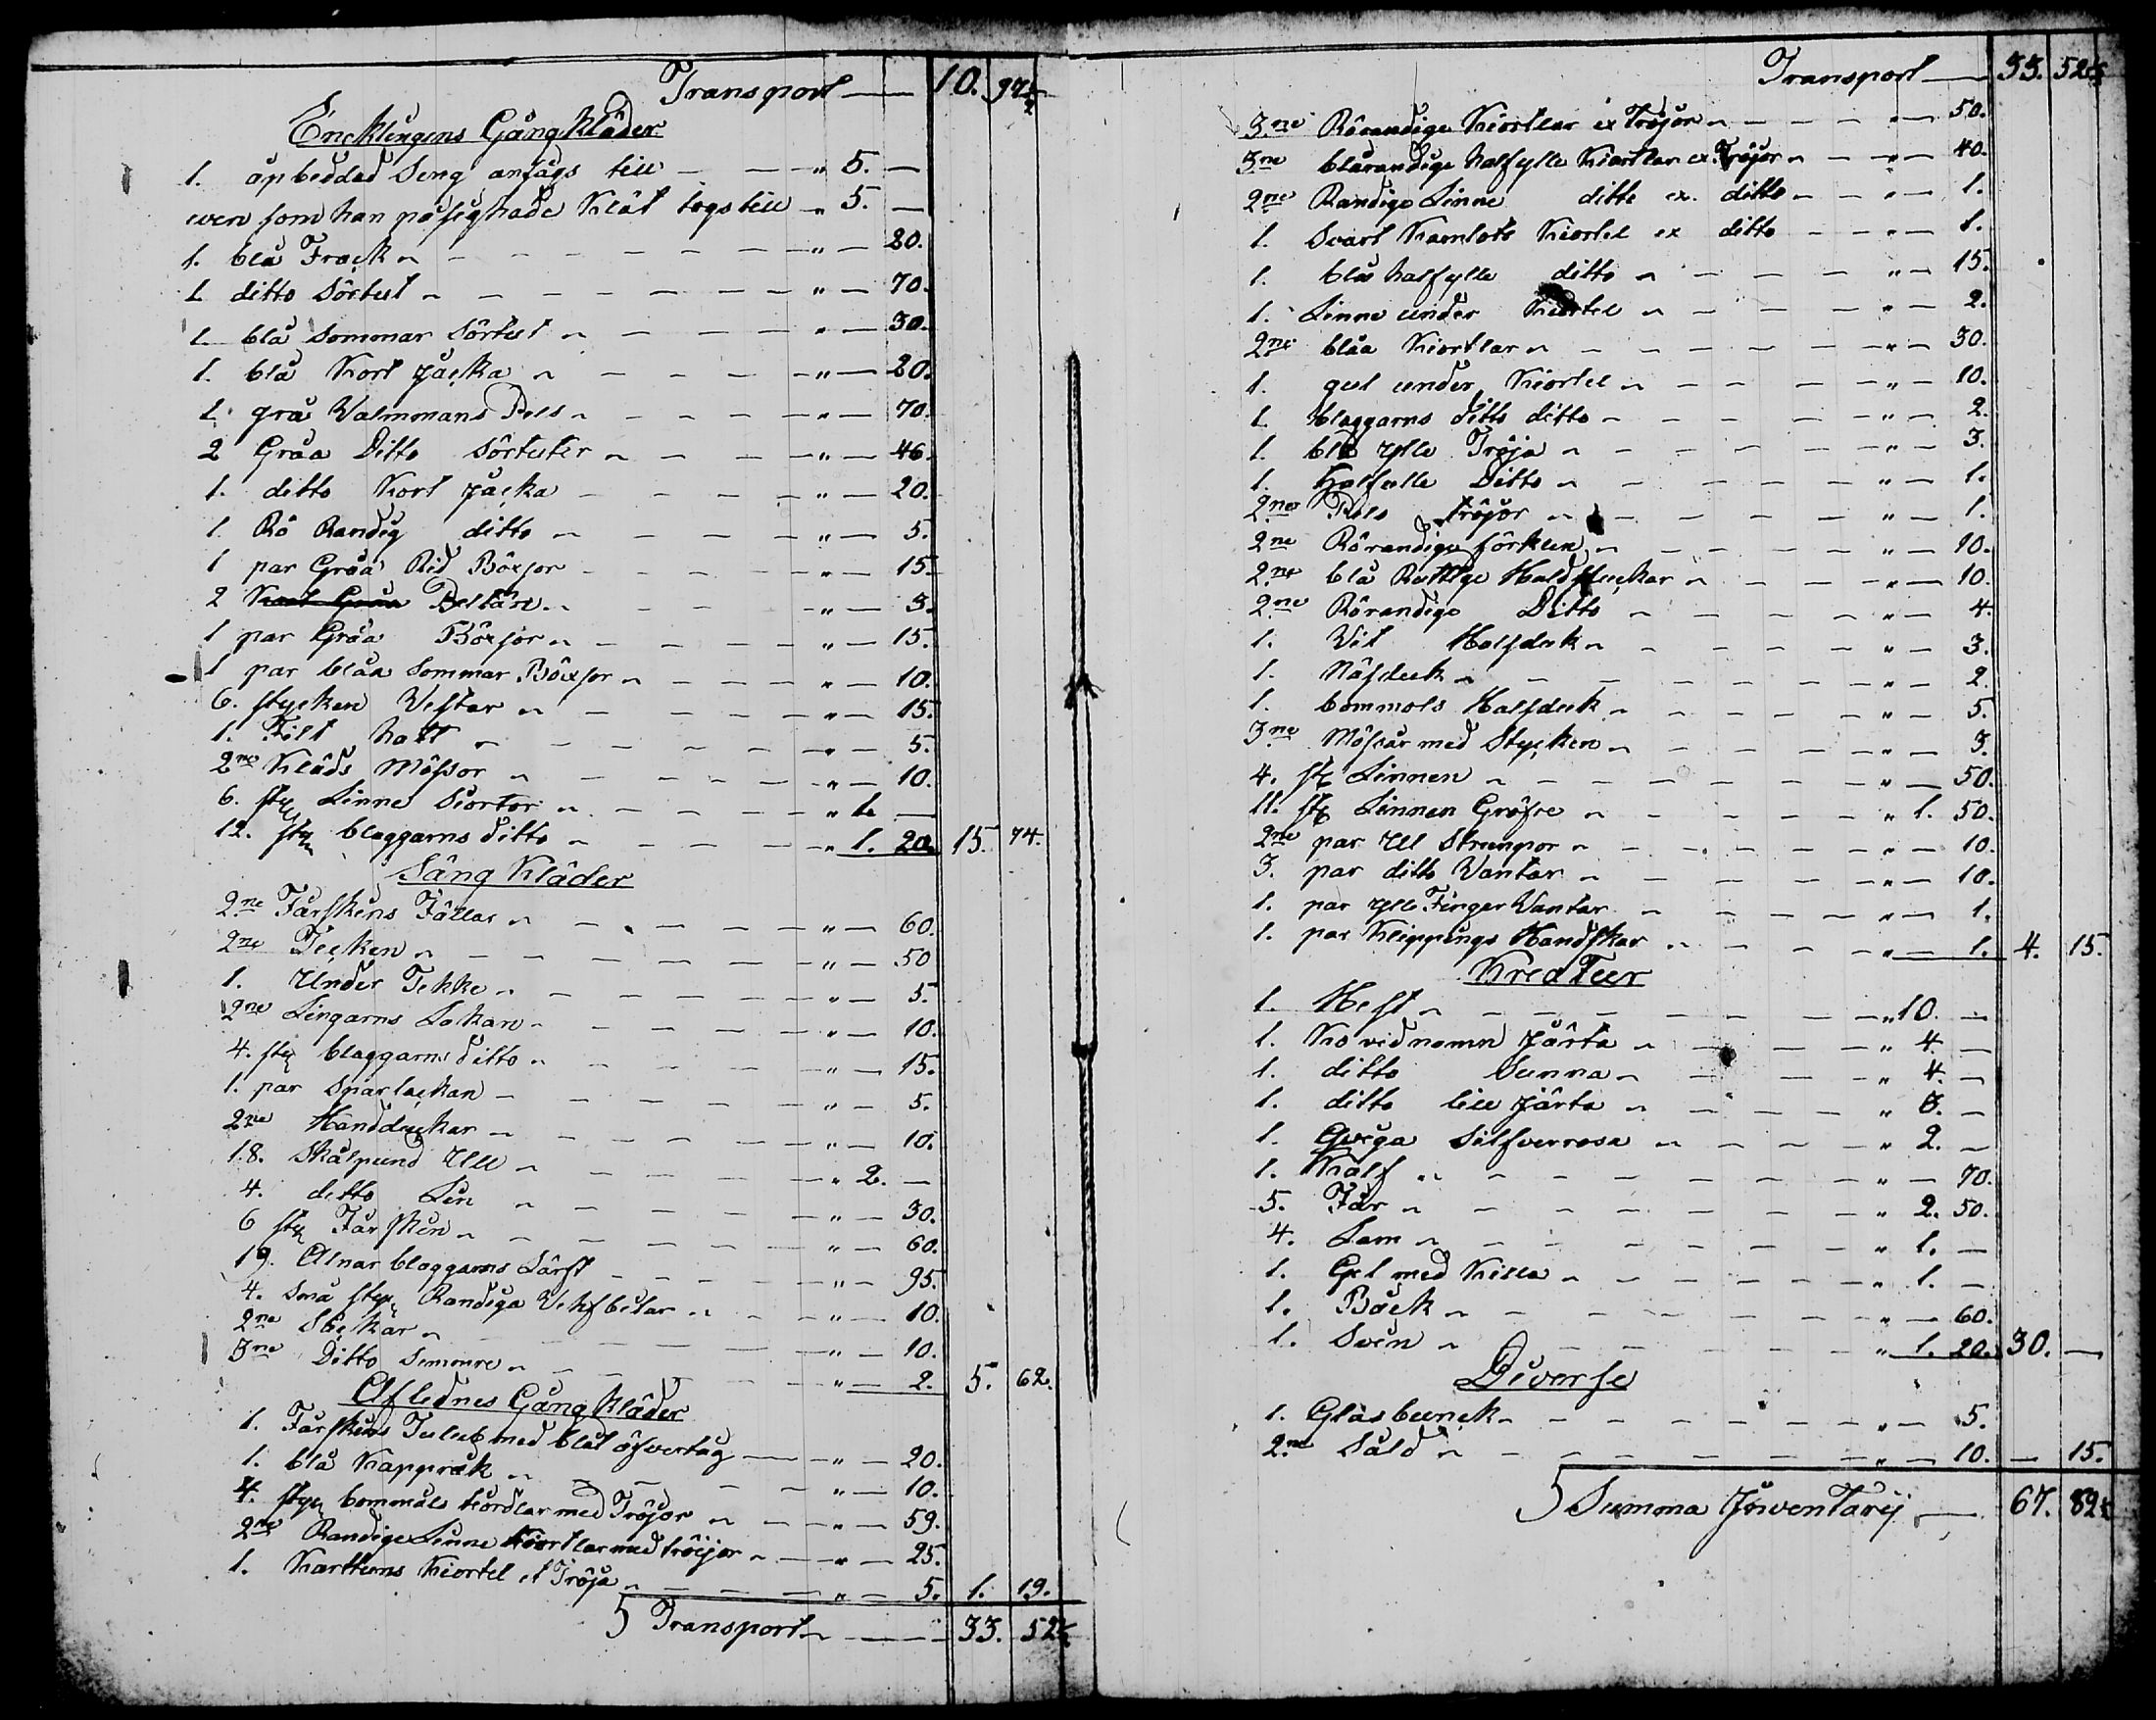 Transport — 10. 97½
Encklingens Gångkläder
1. åpbeddad Seng ansågs till — — " 5. —
wen som han på sig hade Klät togs till " 5. —
1. blå Frack — — — " — 20.
1 ditto Sörtut — — — " — 70.
1 blå Sommar Sörtut — — " — 30.
1. blå Kort Jacka — — — " — 20.
1. grå Walmmans Pels — — " — 70.
2 Gråa Ditto Sörtuter — — " — 46.
1. ditto Kort Jacka — — " — 20.
1. Rö Randig ditto — — " — 5.
1 par Gråa Rid Böxsor — — " — 15.
2 Beltäre — — " — 3.
1 par Gråa Böxsor — — " — 15.
1 par blåa Sommar Böxsor — — " — 10.
6. stycken Vestar — — " — 15.
1. Filt hatt — — " — 5.
2ne Kläds Mössor — — " — 10.
6. sty Linne Siortor — — " 1. —
12. sty blaggarns ditto — — " 1. 20. 15. 74.
Säng Kläder
2ne Fårskins Fällar — — " — 60.
2ne Täcken — — " — 50
1. Under Tekke — — " — 5.
2ne Lingarns Lakan — — " — 10.
4. sty blaggarns ditto — — " — 15.
1. par Sparlackan — — " — 5.
2ne Handduckar — — " — 10.
18. Skålpund Ull — — " 2. —
4. ditto Lin — — " — 30.
6 sty Fårskin — — " — 60.
19. Alnar blaggarns Lärft — — " — 95.
4. Små sty Randiga Vefbitar — — " — 10.
2ne Säckar — — " — 10.
3ne Ditto Simonre — — " — 2. 5. 62.
Aflednes Gång kläder
1. Fårskins Tulub med blåt öfvertag — " — 20.
1. blå Kappråk — — " — 10.
4. sty bommuls kiordlar med Tröjor — " — 59.
2ne Randige Linne kiortlar med tröijor — " — 25.
1. Karttuns Kiortel et Tröja — — " — 5. 1. 19.
Transport — 33. 52½
Transport — 33. 52½
3ne Rörandige Kiortlar ex Tröjor — — 50.
3ne blårandige halfylle Kiortlar ex Tröjor — " — 40.
2ne Randige Linne ditto ex. ditto — " — 1.
1. Svart Kamlots Kiortel ex ditto — — 1.
1. blå halfylle ditto — — " — 15.
1. Linne under Kiortel — — " — 2.
2ne blåa Kiortlar — — " — 30.
1. gul under Kiortel — — " — 10.
1. blaggarns ditto ditto — — " — 2.
1. blå ylle Tröja — — " — 3.
1. Halfylle Ditto — — " — 1.
2ne Pels tröjor — — " — 1.
2ne Rörandige förklen — — " — 10.
2ne blå Ruttige Halsduckar — — " — 10.
2ne Rörandige Ditto — — " — 4.
1. Vit Halsduk — — " — 3.
1. Näsduk — — " — 2.
1. bommols Halsduk — — " — 5.
3ne Mössar med Stycken — — " — 3.
4. st Linnen — — " — 50.
11. st Linnen Gröfre — — " 1. 50.
2ne par Ull Strumpor — — " — 10.
3. par ditto Vantar — — " — 10.
1. par ylle Finger Vantar — — " — 1.
1. par Klippings Handskar — — " — 1. 4. 15.
Kreatur
1. Hest — — " 10. —
1. Ko vid namn Järta — — " 4. —
1. ditto Sunna — — " 4. —
1. ditto lill Järta — — " 3. —
1. Qviga Silfverrosa — — " 2. —
1. Kalf — — " — 70.
5. Får — — " 2. 50.
4. Lam — — " 1. —
1. Get med Killa — — " 1. —
1. Bäck — — " — 60.
1. Svin — — " 1. 20. 30. —
Diverse
1. Glåsbunck — — " — 5.
2ne Såld — — " — 10. — 15.
Summa Inventarij — 67. 82½